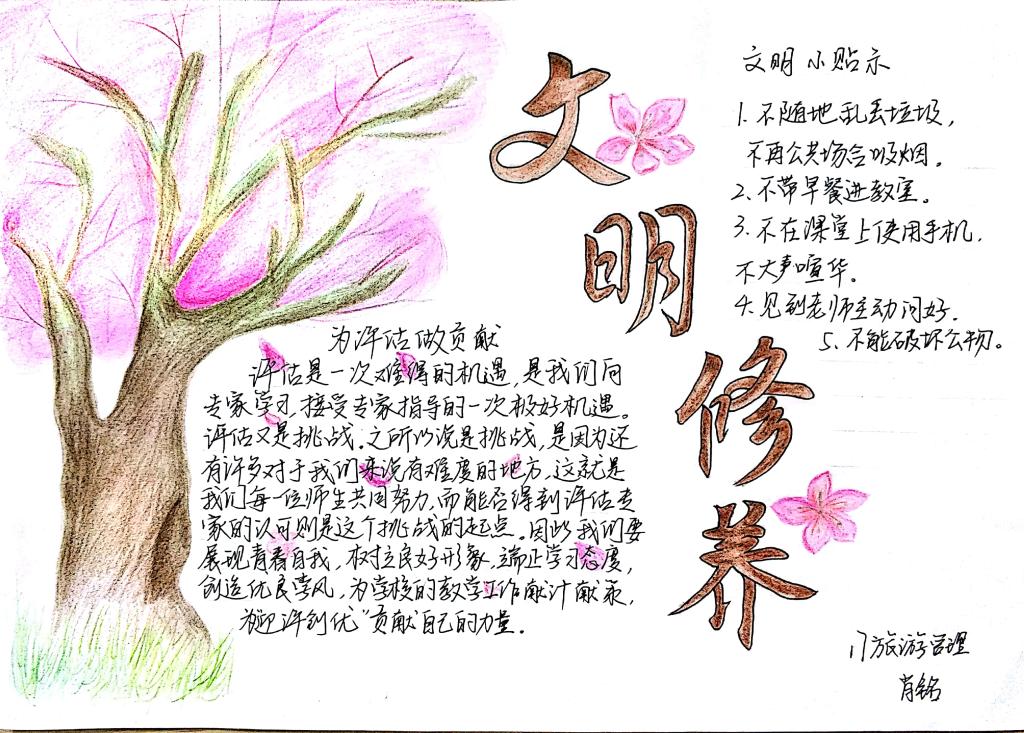 文明修养
文明小贴示
1. 不随地乱丢垃圾，
不再公共场合吸烟。
2. 不带早餐进教室。
3. 不在课堂上使用手机，
不大声喧华。
4. 见到老师主动问好。
5. 不能破坏公物。
为评估做贡献
评估是一次难得的机遇，是我们向
专家学习，接受专家指导的一次极好机遇。
评估又是挑战。之所以说是挑战，是因为还
有许多对于我们来说有难度的地方，这就是
我们每一位师生共同努力，而能否得到评估专
家的认可则是这个挑战的起点。因此我们要
展现青春自我，树立良好形象，端正学习态度，
创造优良学风，为学校的教学工作献计献策，
为迎评创优“贡献自己的力量。
17旅游管理
肖铭